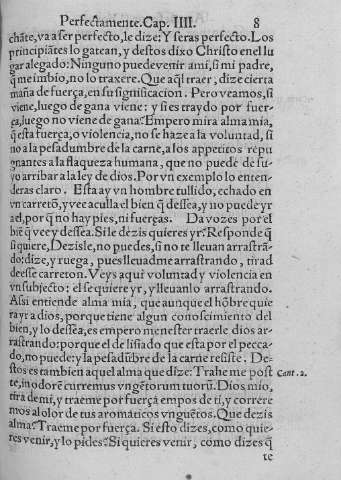 Perfectamente. Cap. IIII. 8
chāte, va a ser perfecto, le dize: Y seras perfecto. Los
principiātes lo gatean, y destos dixo Christo en el lu
gar alegado: Ninguno puede venir a mi, si mi padre,
q̄ me imbio, no lo traxere. Que aq̄l traer, dize cierta
maña de fuerça, en su significacion. Pero veamos, si
viene, luego de gana viene: y si es traydo por fuer-
ça, luego no viene de gana? Empero mira alma mia,
q̄ esta fuerça, o violencia, no se haze a la voluntad, si
no a la pesadumbre de la carne, a los appetitos repu
gnantes a la flaqueza humana, que no puede de su-
yo arribar a la ley de dios. Por vn exemplo lo enten-
deras claro. Esta ay vn hombre tullido, echado en
vn carretō, y vee aculla el bien q̄ dessea, y no puede yr
ad, por q̄ no hay pies, ni fuerças. Da vozes por el
biē q̄ vee y dessea. Si le dezis quieres yr? Responde q̄
si quiere, Dezisle, no puedes, si no te lleuan arrastrā-
do: dize, y ruega, pues lleuadme arrastrando, tirad
de esse carreton. Veys aqui voluntad y violencia en
vn subjecto: el se quiere yr, y lleuanlo arrastrando.
Assi entiende alma mia, que aunque el hōbre quie
ra yr a dios, porque tiene algun conoscimiento del
bien, y lo dessea, es empero menester traerle dios ar-
rastrando: porque el de lisiado que esta por el pecca-
do, no puede: y la pesadūbre de la carne resiste. De-
stos es tambien aquel alma que dize: Trahe me post
te, in odorē curremus vngētorum tuorū. Dios mio, Cant. 2.
tira de mi, y traeme por fuerça empos de ti, y correre
mos al olor de tus aromáticos vnguētos. Que dezis
alma? Traeme por fuerça. Si esto dizes, como quie-
res venir, y lo pides? Si quieres venir, como dizes q̄
te